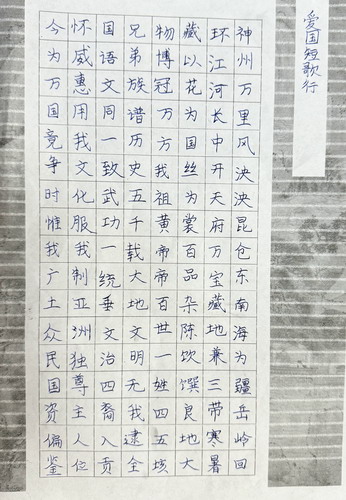 爱国短歌行
神州万里风泱泱昆仓东南海为疆岳岭回
环江河长中开天府万宝藏地兼三带寒暑
藏以花为国丝为裳百品杂陈饮馔良地大
物博冠万方我祖黄帝帝百世一姓四五垓
兄弟族谱历史五千载大地文明无我逮全
国语文同一致武功一统垂文治四裔入贡
怀威惠用我文化服我制亚洲独尊主人位
今为万国竞争时惟我广土众民国资偏鉴